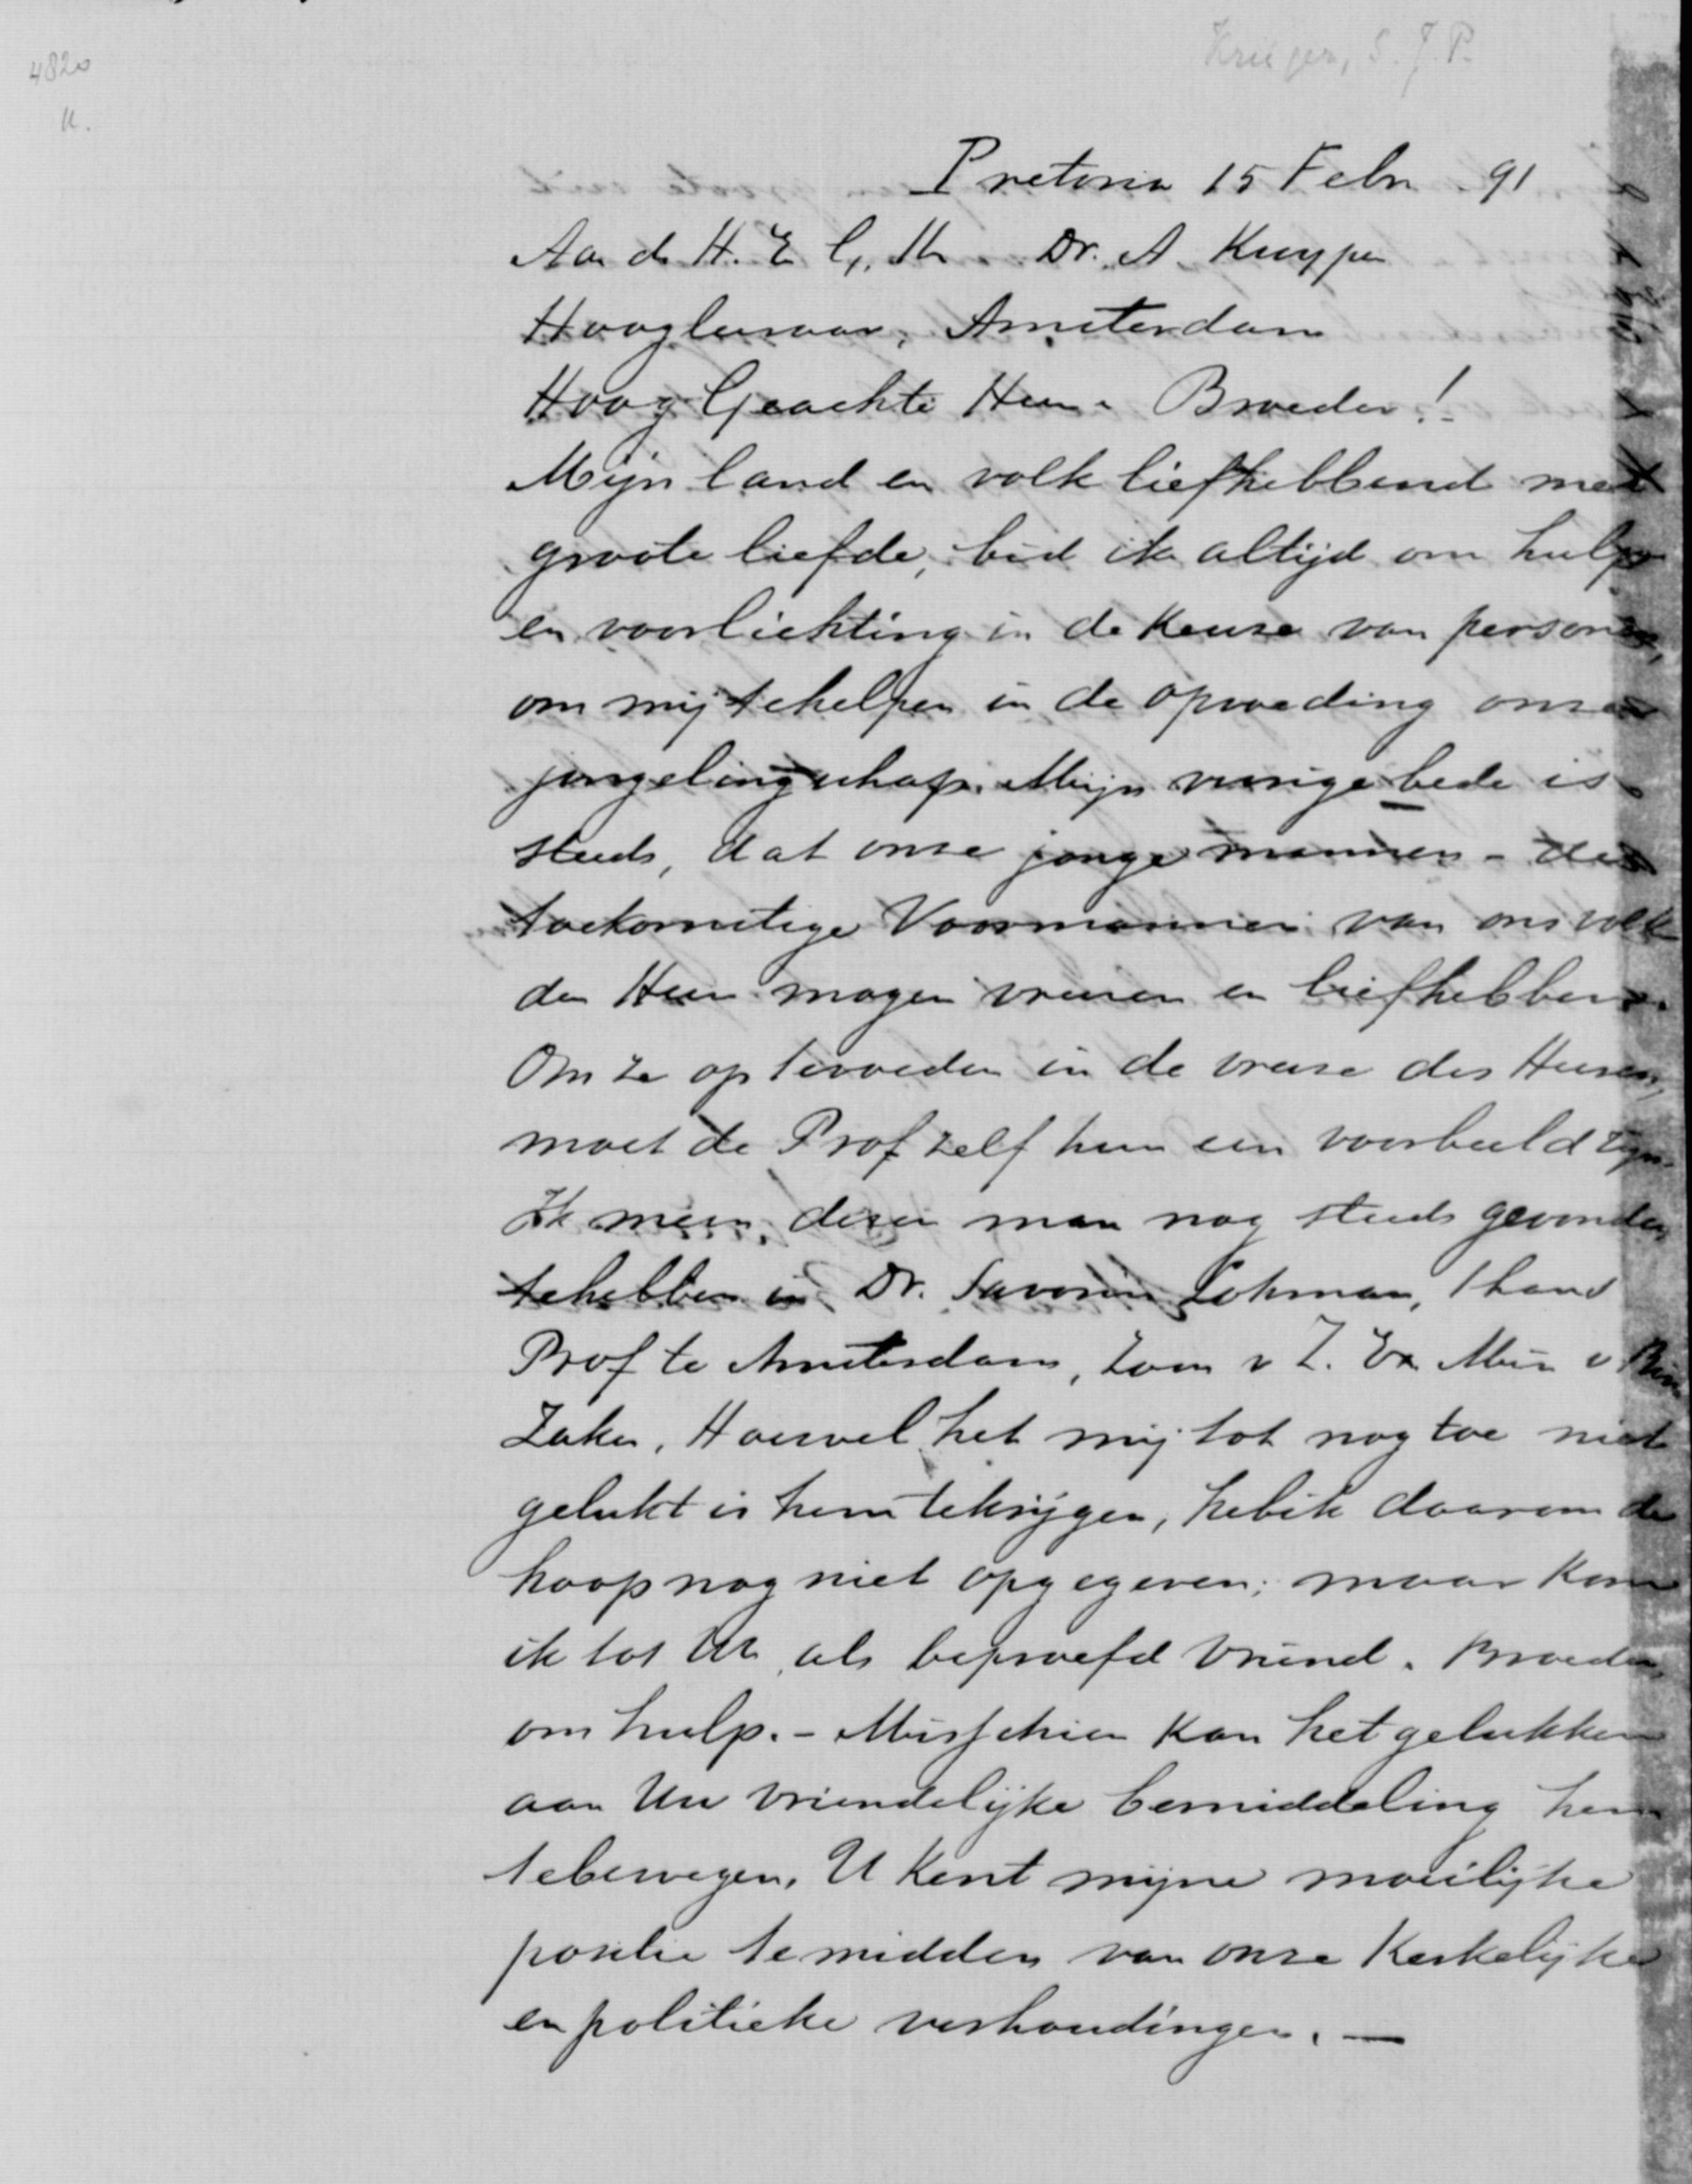 4820
K.
Kruger, S. J. P.
Pretoria 15 Febr. 91
Aan de H. E. G. H. Dr. A. Kuyper
Hoogleeraar, Amsterdam
Hoog Geachte Heer & Broeder!
Mijn land en volk liefhebbend met
groote liefde, bid ik altijd om hulp
en voorlichting in de keuze van personen,
om mij te helpen in de opvoeding onzer
jongelingschap. Mijn vurige bede is
steeds, dat onze jonge mannen - de
toekomstige Voormannen van ons volk
den Heer mogen vreezen en liefhebben.
Om ze op te voeden in de vreeze des Heeren,
moet de Prof zelf hun een voorbeeld zijn.
Ik meen, dezen man nog steeds gevonden
te hebben in Dr. Savornin Lohman, thans
Prof te Amsterdam, zoon v Z. Ex Min v Bin
Zaken, Hoewel het mij tot nog toe niet
gelukt is hem te krijgen, heb ik daarom de
hoop nog niet opgegeven; maar kom
ik tot U, als beproefd vriend & Broeder
om hulp. - Misschien kan het gelukken
aan Uw vriendelijke bemiddeling hem
te bewegen. U kent mijne moeilijke
positie te midden van onze Kerkelijke
en politieke verhoudingen. —